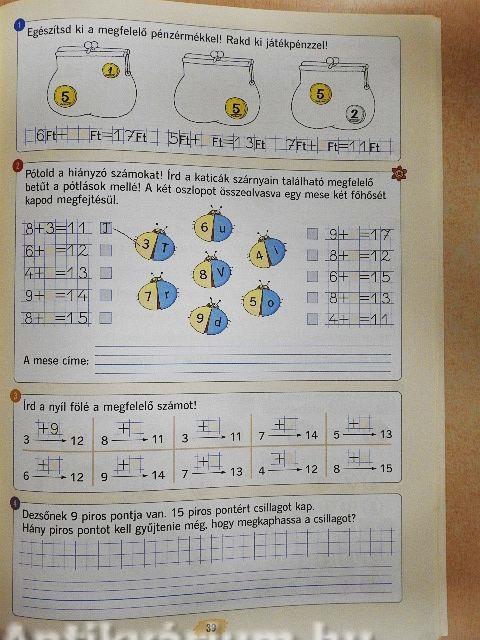 1 Egészítsd ki a megfelelő pénzérmékkel! Rakd ki játékpénzzel!
5 1 5 5 2
6Ft+ Ft=17Ft 5Ft+ Ft=13Ft 7Ft+ Ft=11Ft
2 Pótold a hiányzó számokat! Írd a katicák szárnyain található megfelelő
betűt a pótlások mellé! A két oszlopot összeolvasva egy mese két főhősét
kapod megfejtésül.
8+3=11 T 3 T 6 u 4 i 9+ =17
6+ =12 8+ =12
4+ =13 8 V 6+ =15
9+ =14 7 r 5 o 8+ =13
8+ =15 9 d 4+ =11
A mese címe:
3 Írd a nyíl fölé a megfelelő számot!
+9 + + + +
3 12 8 11 3 11 7 14 5 13
+ + + + +
6 12 9 14 7 13 4 12 8 15
4 Dezsőnek 9 piros pontja van. 15 piros pontért csillagot kap.
Hány piros pontot kell gyűjtenie még, hogy megkaphassa a csillagot?
39